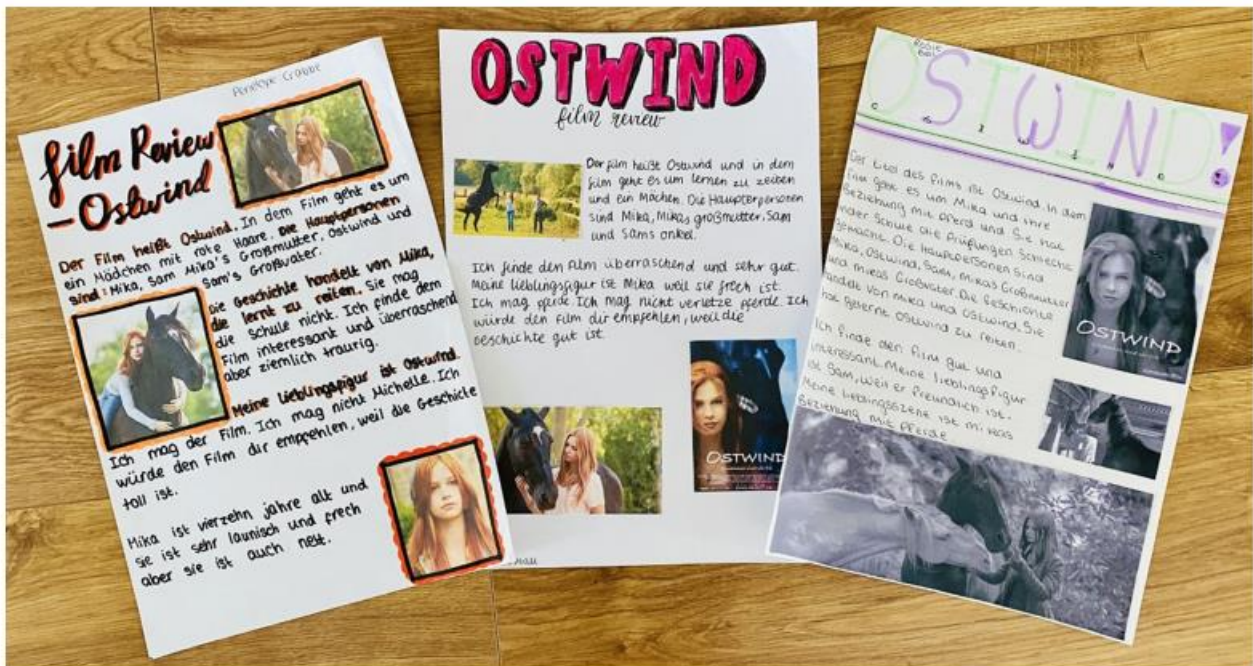 Penelope Crabbe
film Review
– Ostwind
Der Film heißt Ostwind. In dem Film geht es um
ein Mädchen mit rote Haare. Die Hauptpersonen
sind: Mika, Sam Mika's Großmutter, Ostwind und
Sam's Großvater.
Die Geschichte handelt von Mika,
die lernt zu reiten. Sie mag
die Schule nicht. Ich finde dem
Film interessant und überraschend
aber ziemlich traurig.
Meine Lieblingspigur ist Ostwind.
Ich mag der Film. Ich mag nicht Michelle. Ich
würde den Film dir empfehlen, weil die Geschicte
toll ist.
Mika ist vierzehn jahre alt und
sie ist sehr launisch und frech
aber sie ist auch nett.
OSTWIND
film review
Der film heißt Ostwind und in dem
film geht es um lernen zu zeiben
und ein Mächen. Die Haupterpersonen
sind Mika, Mikas großmutter, Sam
und Sams onkel.
Ich finde den Film überraschend und sehr gut.
Meine lieblingsfigur ist Mika weil sie frech ist.
Ich mag pferde Ich mag nicht verletze pferde. Ich
würde den film dir empfehlen, weil die
geschichte gut ist.
OSTWIND
Rosie
OSTWIND!
Der titel des films ist Ostwind. In dem
film geht es um Mika und ihre
Beziehung mit pferd und Sie hat
inder Schule die Prüfungen Schlechte
gemacht. Die Hauptpersonen sind
Mika, Ostwind, Sam, mikas Großmutter
und mikas Großvater. Die Geschichte
handelt von Mika und Ostwind. Sie
hat gelernt Ostwind zu reiten.
Ich finde den film gut und
interessant. Meine lieblingsfigur
ist Sam, weil er freundlich ist.
Meine lieblingszene ist mikas
Beziehung mit pferde
OSTWIND